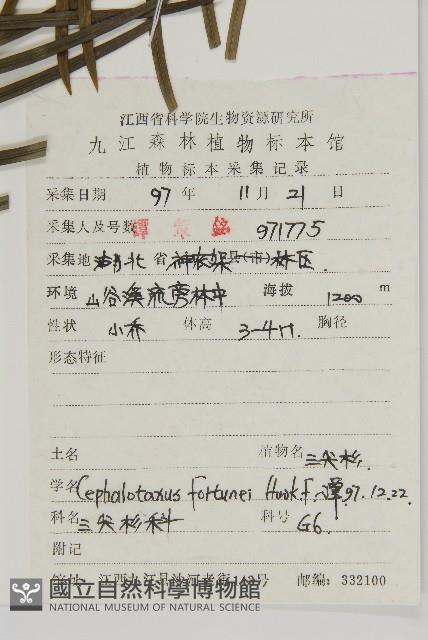 江西省科学院生物资源研究所
九江森林植物标本馆
植物标本采集记录
采集日期 97 年 11 月 21 日
采集人及号数 譚策銘 971775
采集地 湖北 省 神农架 县(市) 林区.
环境 山谷溪流旁林中 海拔 1200 m
性状 小乔 体高 3-4m. 胸径
形态特征
土名 植物名 三尖杉.
学名 Cephalotaxus fortunei Hook.f. 譚97.12.22.
科名 三尖杉科 科号 G6.
附记
江西九江县沙河老街 号 邮编: 332100
國立自然科學博物館
NATIONAL MUSEUM OF NATURAL SCIENCE